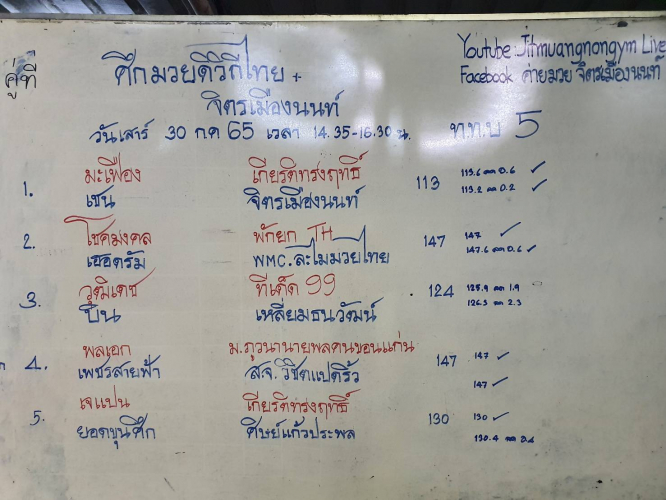 Youtube : Jitmuangnongym Live
Facebook ค่ายมวย จิตรเมืองนนท์
คู่ที่
ศึกมวยดีวิถีไทย +
จิตรเมืองนนท์
วันเสาร์ 30 กค 65 เวลา 14.35-16.30 น. ท.ท.บ 5
มะเฟือง เกียรติทรงฤทธิ์ 113.6 ลด 0.6 ✓
1. 113
เชน จิตรเมืองนนท์ 113.2 ลด 0.2 ✓
โชคมงคล พักยก TH 147 ✓
2. 147
เฮอดรัม WMC. ละไมมวยไทย 147.6 ลด 0.6 ✓
วุฒิเดช ทีเด็ด 99 125.9 ลด 1.9
3. 124
บิน เหลี่ยมธนวัฒน์ 126.3 ลด 2.3
พลเอก ม.ภูวนานายพลคนขอนแก่น 147 ✓
4. 147
เพชรสายฟ้า ส.จ. วิชิตแปดริ้ว 147 ✓
เจแปน เกียรติทรงฤทธิ์ 130 ✓
5. 130
ยอดขุนศึก ศิษย์แก้วประพล 130.4 ลด 0.4